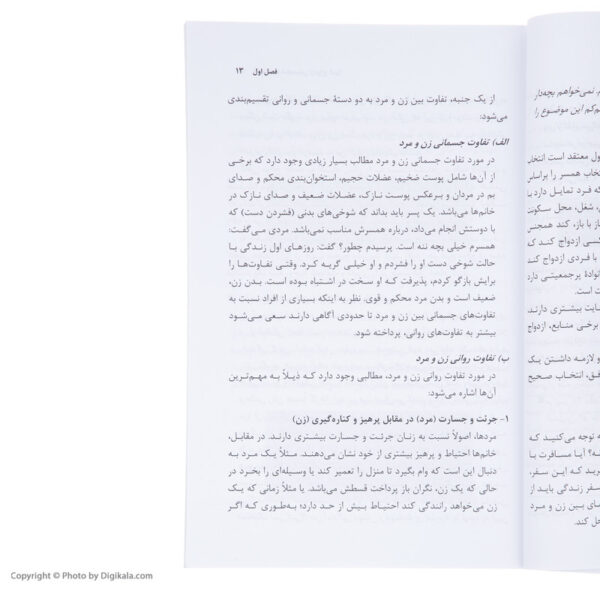 فصل اول ۱۳
از یک جنبه، تفاوت بین زن و مرد به دو دستهٔ جسمانی و روانی تقسیم‌بندی
می‌شود:
الف) تفاوت جسمانی زن و مرد
در مورد تفاوت جسمانی زن و مرد مطالب بسیار زیادی وجود دارد که برخی از
آن‌ها شامل پوست ضخیم، عضلات حجیم، استخوان‌بندی محکم و صدای
بم در مردان و برعکس پوست نازک، عضلات ضعیف و صدای نازک در
خانم‌ها می‌باشد. یک پسر باید بداند که شوخی‌های بدنی (فشردن دست) که
با دوستش انجام می‌داد، درباره همسرش مناسب نمی‌باشد. مردی می‌گفت:
همسرم خیلی بچه ننه است. پرسیدم چطور؟ گفت: روزهای اول زندگی با
حالت شوخی دست او را فشردم و او خیلی گریه کرد. وقتی تفاوت‌ها را
برایش بازگو کردم، پذیرفت که او سخت در اشتباه بوده است. بدن زن،
ضعیف است و بدن مرد محکم و قوی. نظر به اینکه بسیاری از افراد نسبت به
تفاوت‌های جسمانی بین زن و مرد تا حدودی آگاهی دارند سعی می‌شود
بیشتر به تفاوت‌های روانی، پرداخته شود.
ب) تفاوت روانی زن و مرد
در مورد تفاوت روانی زن و مرد، مطالبی وجود دارد که ذیلاً به مهم‌ترین
آن‌ها اشاره می‌شود:
۱- جرئت و جسارت (مرد) در مقابل پرهیز و کناره‌گیری (زن)
مردها، اصولاً نسبت به زنان جرئت و جسارت بیشتری دارند. در مقابل،
خانم‌ها احتیاط و پرهیز بیشتری از خود نشان می‌دهند. مثلاً یک مرد به
دنبال این است که وام بگیرد تا منزل را تعمیر کند یا وسیله‌ای را بخرد در
حالی که یک زن، نگران باز پرداخت قسطش می‌باشد. یا مثلاً زمانی که یک
زن می‌خواهد رانندگی کند احتیاط بیش از حد دارد؛ به‌طوری که اگر
نمی‌خواهم بچه‌دار
این موضوع را
معتقد است انتخاب
همسر را براساس
که فرد تمایل دارد با
شغل، محل سکونت
باز کند همچنین
کسی ازدواج کند که
با فردی ازدواج کند
پرجمعیتی دارد
است.
بیشتری دارند.
برخی منابع، ازدواج
و لازمه داشتن یک
انتخاب صحیح
توجه می‌کنید که
آیا مسافرت با
که این سفر،
سفر زندگی باید از
بین زن و مرد
کند.
Copyright © Photo by Digikala.com